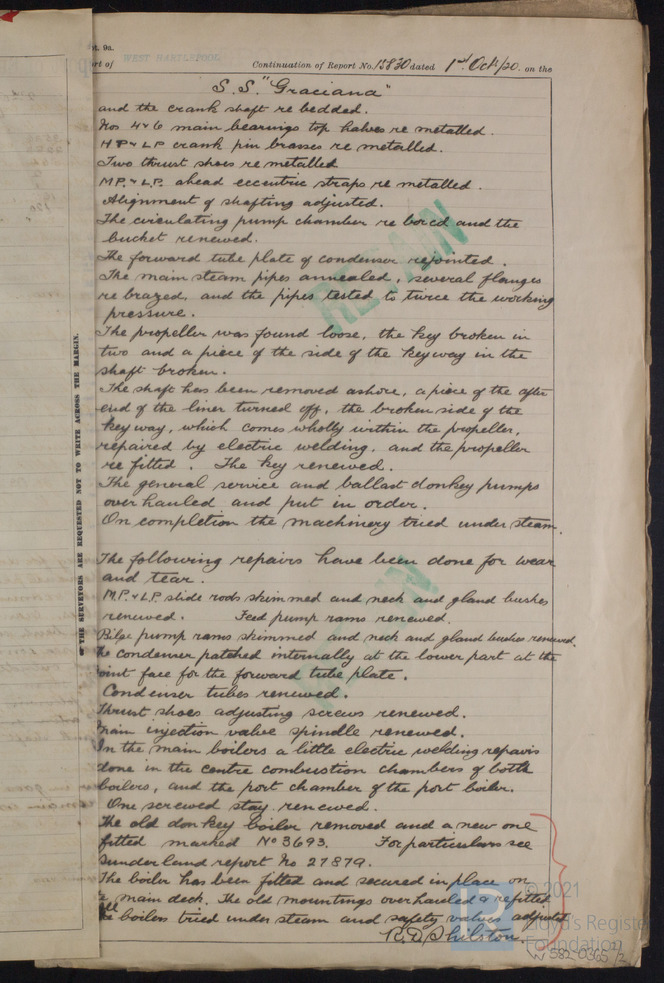 pt. 9a.
rt of WEST HARTLEPOOL Continuation of Report No. 15830 dated 1st Oct/20. on the
S.S. "Graciana"
and the crank shaft re bedded.
Nos 4 & 6 main bearings top halves re metalled.
HP & LP crank pin brasses re metalled.
Two thrust shoes re metalled
MP. & L.P. ahead eccentric straps re metalled.
Alignment of shafting adjusted.
The circulating pump chamber re bored and the
bucket renewed.
The forward tube plate of condenser rejointed.
The main steam pipes annealed, several flanges
re brazed, and the pipes tested to twice the working
pressure.
The propeller was found loose, the key broken in
two and a piece of the side of the keyway in the
shaft broken.
The shaft has been removed ashore, a piece of the after
end of the liner turned off, the broken side of the
key way, which comes wholly within the propeller,
repaired by electric welding, and the propeller
re fitted. The key renewed.
The general service and ballast donkey pumps
overhauled and put in order.
On completion the machinery tried under steam.
The following repairs have been done for wear
and tear.
M.P. & L.P. slide rods skimmed and neck and gland bushes
renewed. Feed pump rams renewed.
Bilge pump rams skimmed and neck and gland bushes renewed.
he condenser patched internally at the lower part at the
oint face for the forward tube plate.
Condenser tubes renewed.
Thrust shoes adjusting screws renewed.
Main injection valve spindle renewed.
In the main boilers a little electric welding repairs
done in the centre combustion chambers of both
boilers, and the port chamber of the port boiler.
One screwed stay renewed.
The old donkey boiler removed and a new one
fitted marked No 3693. For particulars see
Sunderland report No 27879.
The boiler has been fitted and secured in place on
a main deck. The old mountings overhauled & refitted
All
he boilers tried under steam and safety valves adjusted
R.D. Shilston.
OF THE SURVEYORS ARE REQUESTED NOT TO WRITE ACROSS THE MARGIN.
© 2021
Lloyd's Register
Foundation
W582-0365 1/2